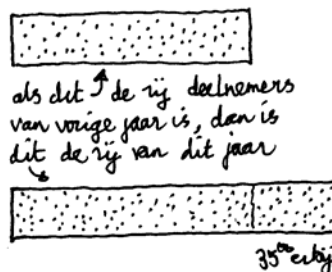 als dit de rij deelnemers
van vorige jaar is, dan is
dit de rij van dit jaar
35% erbij